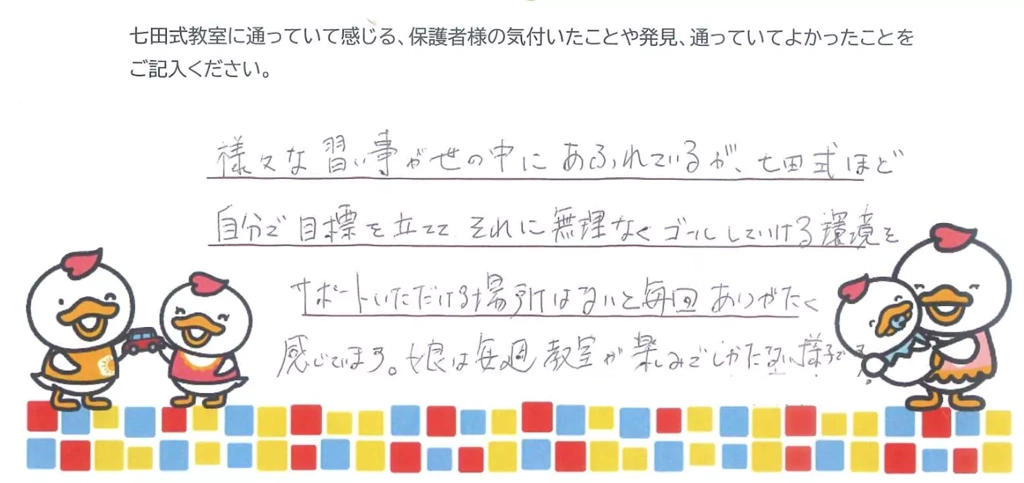 七田式教室に通っていて感じる、保護者様の気付いたことや発見、通っていてよかったことを
ご記入ください。
様々な習い事が世の中にあふれているが、七田式ほど
自分で目標を立てて それに無理なくゴールしていける環境を
サポートいただける場所はないと毎回ありがたく
感じてます。娘は毎週教室が楽しみでしかたない様子です